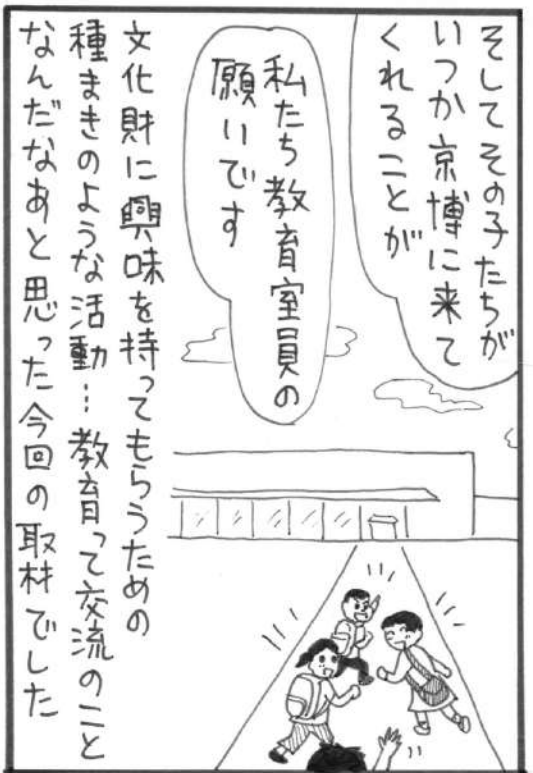 そしてその子たちが
いつか京博に来て
くれることが
私たち教育室員の
願いです
文化財に興味を持ってもらうための
種まきのような活動…教育って交流のこと
なんだなあと思った今回の取材でした